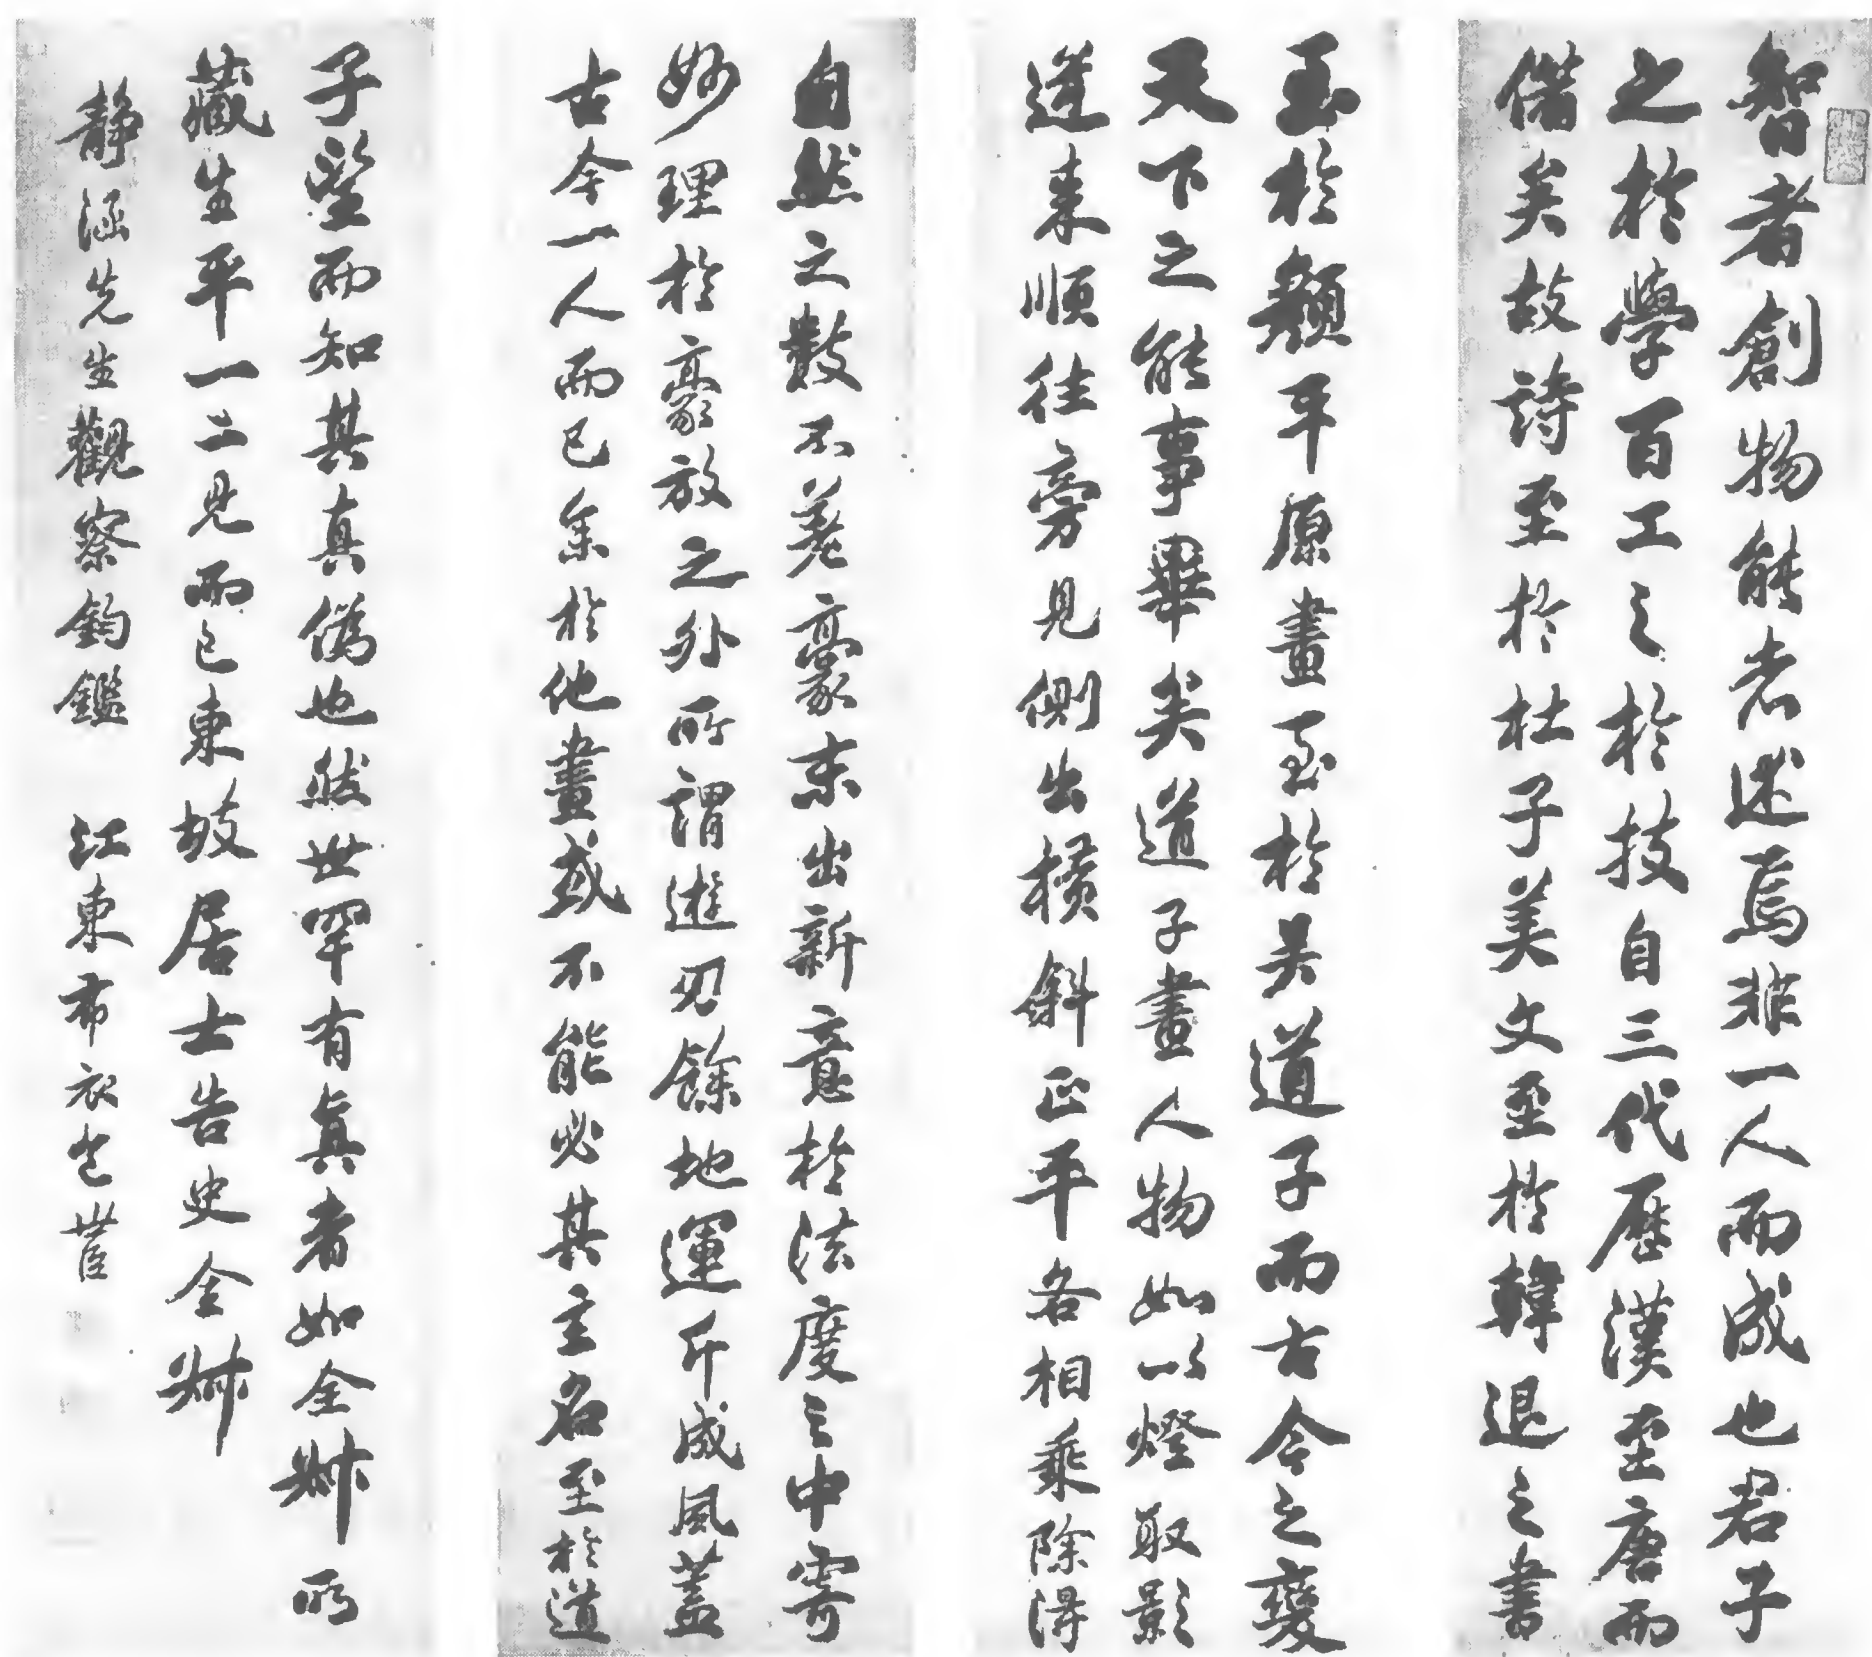 智者創物能者述焉非一人而成也君子
之於學百工之於技自三代歷漢至唐而
備矣故詩至於杜子美文至於韓退之書
至於顏平原畫至於吳道子而古今之變
天下之能事畢矣道子畫人物如以燈取影
逆來順往旁見側出橫斜正平各相乘除得
自然之數不差豪末出新意於法度之中寄
妙理於豪放之外所謂遊刃餘地運斤成風蓋
古今一人而已余於他畫或不能必其主名至於道
子望而知其真偽也然世罕有真者如全叔所
藏生平一二見而已東坡居士告史全叔
靜涵先生觀察鈞鑑
江東布衣包世臣